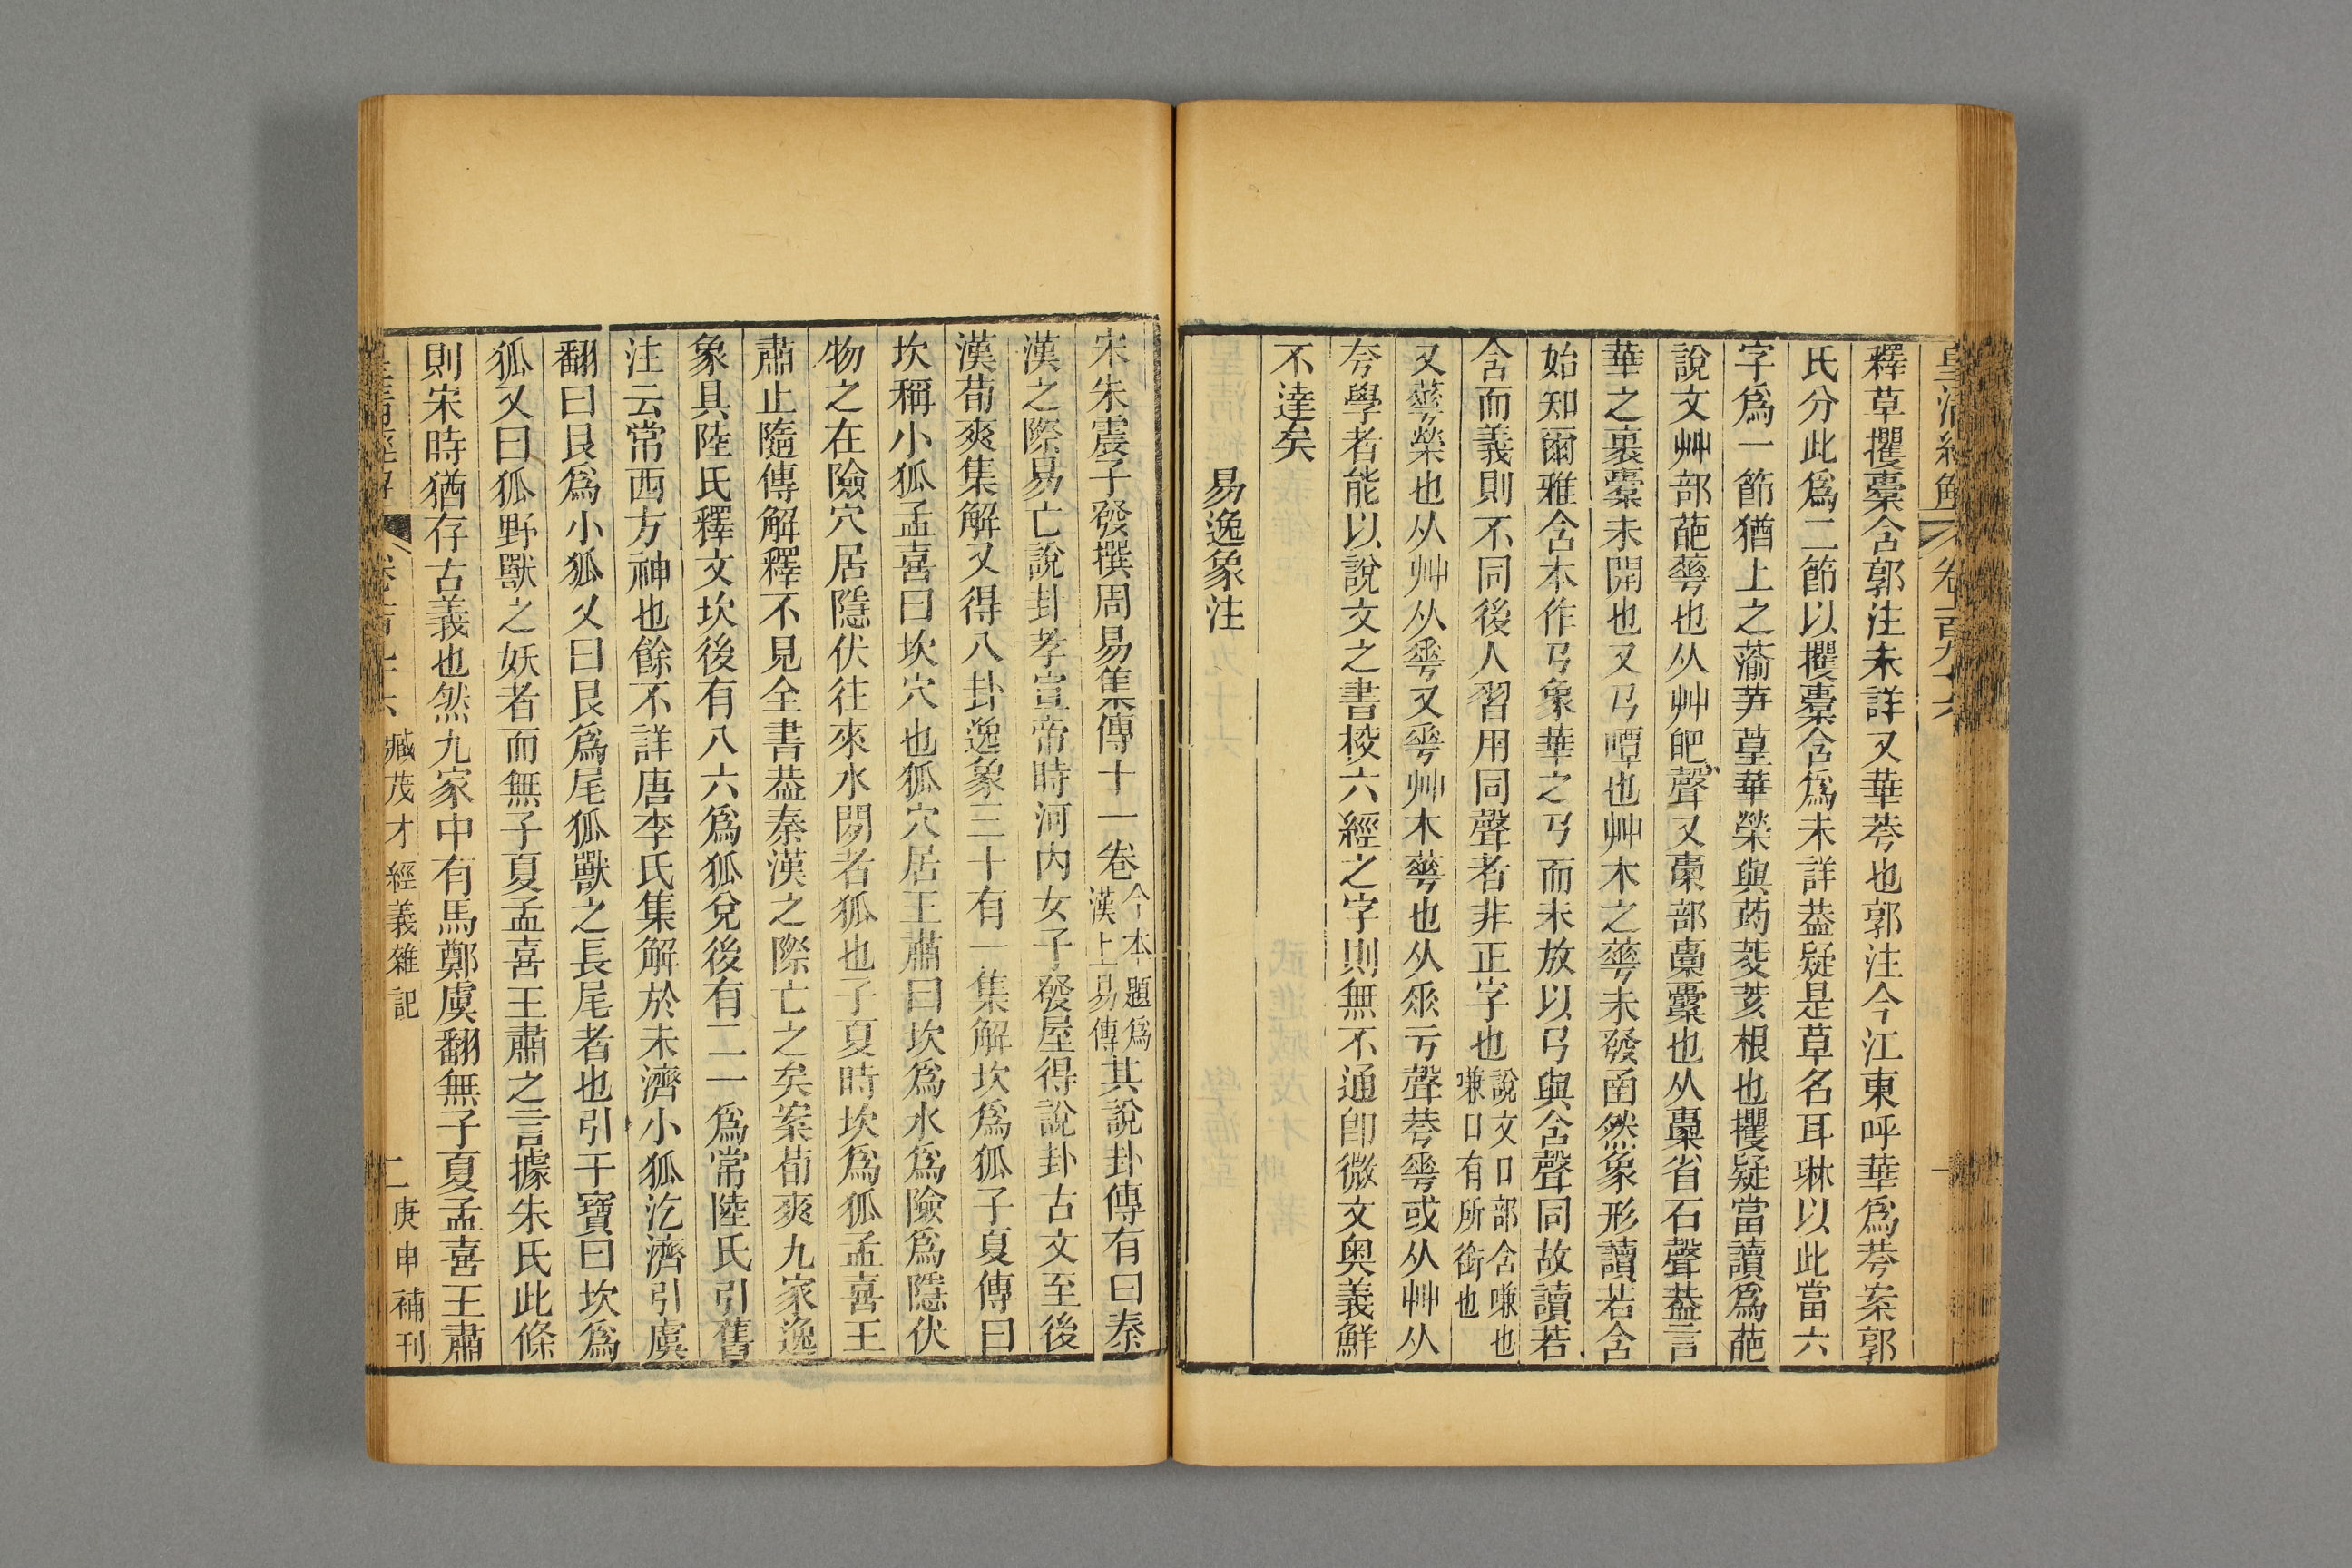 皇清經解 卷二百九六 一
釋草攫橐含郭注未詳又華荂也郭注今江東呼華爲荂案郭
氏分此爲二節以攫橐含爲未詳葢疑是草名耳琳以此當六
字爲一節猶上之蕍芛葟華榮與葯茭荄根也攫疑當讀爲葩
說文艸部葩蕚也从艸皅聲又㯻部橐囊也从㯻省石聲葢言
華之裹橐未開也又𢎘嘾也艸木之蕚未發函然象形讀若含
始知爾雅含本作𢎘象華之𢎘而未放以𢎘與含聲同故讀若
含而義則不同後人習用同聲者非正字也說文口部含嗛也
嗛口有所銜也
又蕚榮也从艸从𠌶又𠌶艸木蕚也从𠂹亏聲荂𠌶或从艸从
夸學者能以說文之書校六經之字則無不通卽微文奥義鮮
不達矣
易逸象注
宋朱震子發撰周易集傳十一卷今本題爲
漢上易傳其說卦傳有曰秦
漢之際易亡說卦孝宣帝時河内女子發屋得說卦古文至後
漢荀爽集解又得八卦逸象三十有一集解坎爲狐子夏傳曰
坎稱小狐孟喜曰坎穴也狐穴居王肅曰坎爲水爲險爲隱伏
物之在險穴居隱伏往來水閒者狐也子夏時坎爲狐孟喜王
肅止隨傳解釋不見全書葢秦漢之際亡之矣案荀爽九家逸
象具陸氏釋文坎後有八六爲狐兌後有二一爲常陸氏引舊
注云常西方神也餘不詳唐李氏集解於未濟小狐汔濟引虞
翻曰艮爲小狐又曰艮爲尾狐獸之長尾者也引干寶曰坎爲
狐又曰狐野獸之妖者而無子夏孟喜王肅之言據朱氏此條
則宋時猶存古義也然九家中有馬鄭虞翻無子夏孟喜王肅
臧茂才經義雜記 二 庚申補刊